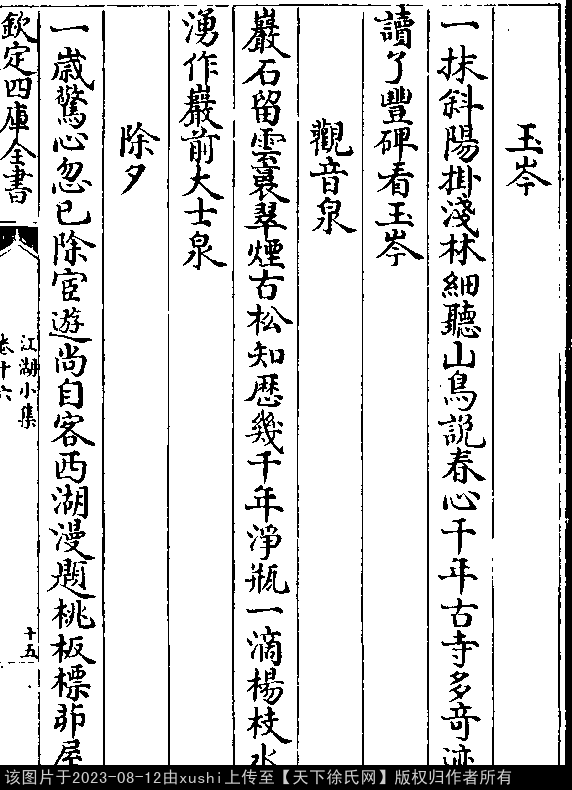 玉岑
一抹斜陽掛淺林細聽山鳥説春心千年古寺多奇迹
讀了豐碑看玉岑
觀音泉
巖石留雲裊翠煙古松知歴幾千年淨瓶一滴楊枝水
湧作巖前大士泉
除夕
一歳驚心忽已除宦遊尚自客西湖漫題桃板標茆屋
欽定四庫全書
江湖小集
卷十六
十五
该图片于2023-08-12由xushi上传至【天下徐氏网】版权归作者所有